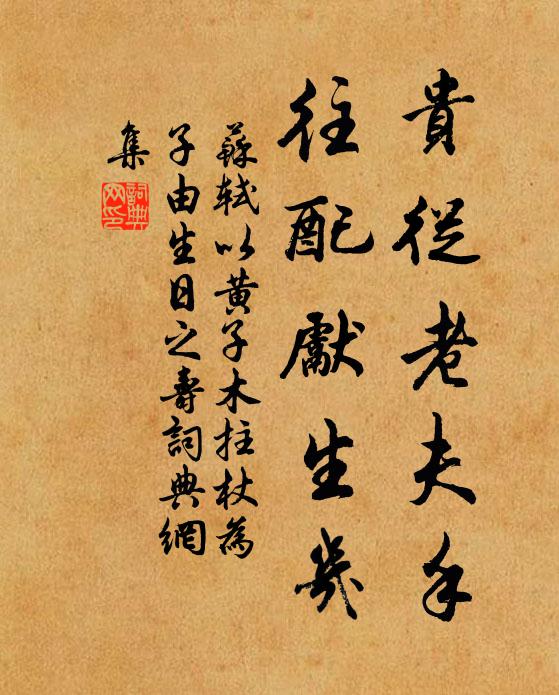 貴從老夫手
往配獻生幾
蘇軾以黃子木拄杖為
子由生日之壽詞典網
集
詞典
网印